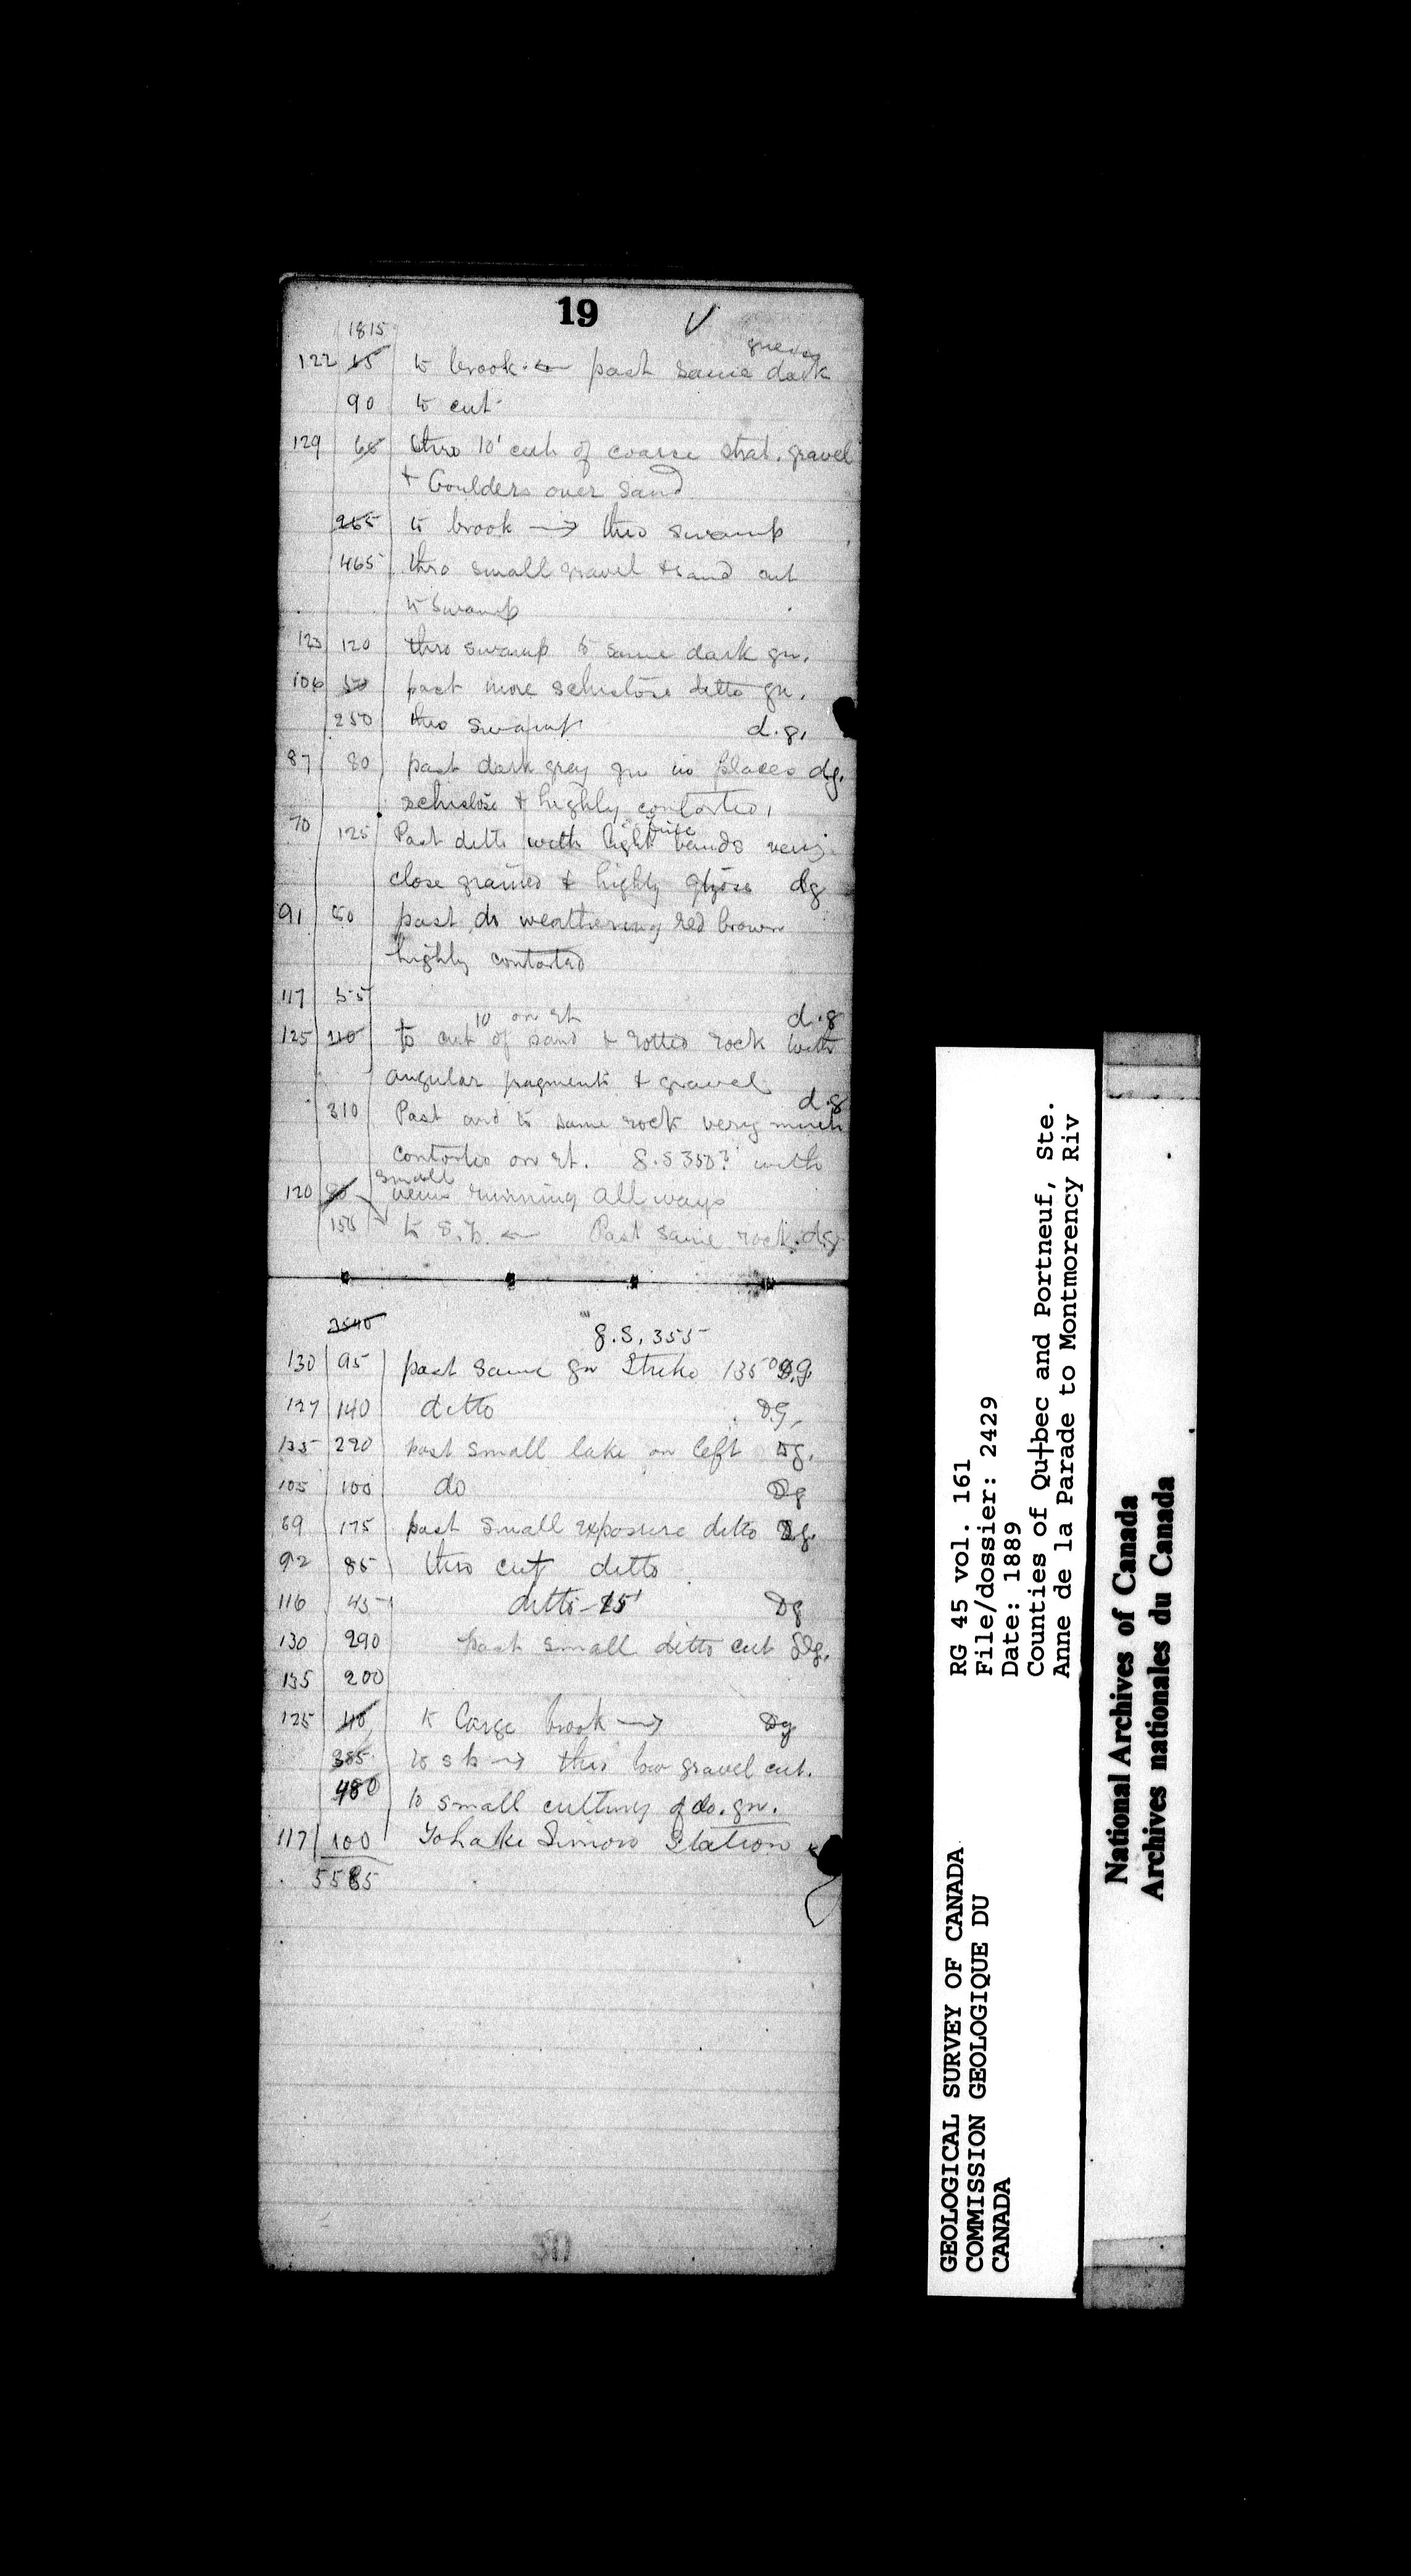 19
1815
gneiss
122 65 to brook ← past same dark
90 to cut
129 65 thro 10' cut of coarse strat. gravel
+ boulders over sand
265 to brook → thro swamp
465 thro small gravel + sand cut
to swamp
123 120 thro swamp to same dark gn.
106 50 past more schistose ditto gn.
250 thro swamp d.g.
87 80 past dark grey gn in places dg.
schistose + highly contorted,
70 125 Past ditto with light bands very
close grained + highly dg
91 50 past do weathering red brown
highly contorted
117 55
10 on rt d.g
125 210 to cut of sand + rotted rock with
angular fragments + gravel
d.g
310 Past and to same rock very much
contorted on rt. g.s 350? with
small
120 80 veins running all ways
150 to s.b. ← Past same rock. d.g
3540
g.s. 355
130 95 past same gn Strike 135° D.G
127 140 ditto D.G.
135 290 past small lake on left Dg.
105 100 do Dg
69 175 past small exposure ditto Dg.
92 85 thro cut ditto
116 45 ditto 15' Dg
130 290 past small ditto cut Dg.
135 200
125 40 to large brook → Dg
385 to s b → thro low gravel cut.
480 to small cutting of do. gn.
117 100 To Lake Simon Station
5585
GEOLOGICAL SURVEY OF CANADA
COMMISSION GEOLOGIQUE DU
CANADA
RG 45 vol. 161
File/dossier: 2429
Date: 1889
Counties of Qu†bec and Portneuf, Ste.
Anne de la Parade to Montmorency Riv
National Archives of Canada
Archives nationales du Canada